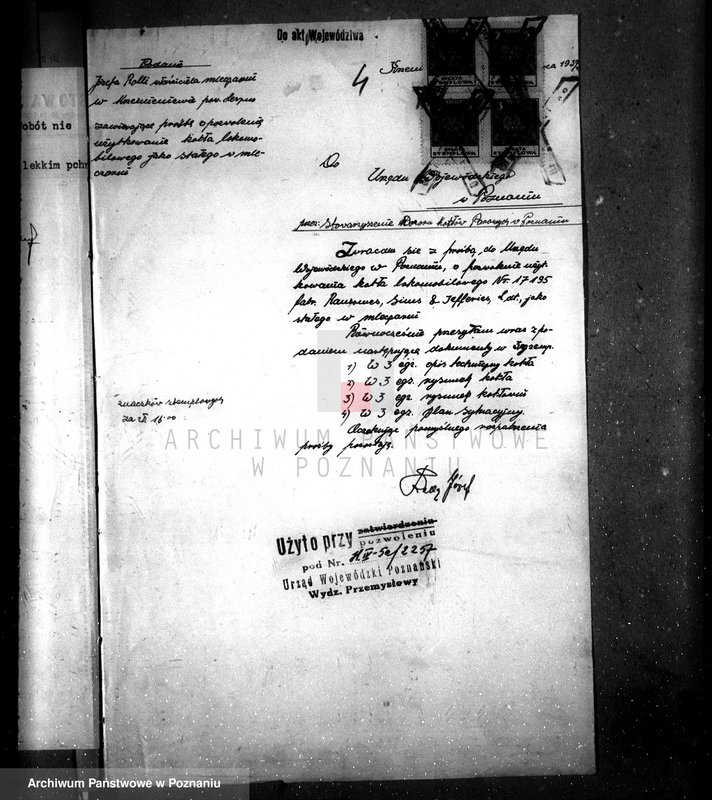 Do akt Województwa
Podanie
Józefa Ralli właściciela mleczarni
w pow.
zawierające prośbę o pozwolenie
użytkowania kotła lokomo-
bilowego jako stałego w mle-
czarni
4
193
OPŁATA
STEMPLOWA
OPŁATA
STEMPLOWA
obót nie
lekkim pchn
Do
Urzędu Wojewódzkiego
w Poznaniu
przez: Stowarzyszenie Dozoru Kotłów Parowych w Poznaniu
Zwracam się z prośbą do Urzędu
Wojewódzkiego w Poznaniu, o pozwolenie użyt-
kowania kotła lokomobilowego Nr. 17195
fabr. Ransomes, Sims & Jefferies, Ldt., jako
stałego w mleczarni
Równocześnie przesyłam wraz z po-
daniem następujące dokumenty w 3 egzemp.
1) W 3 egz. opis techniczny kotła
2) W 3 egz. rysunek kotła
3) W 3 egz. rysunek kotłowni
4) W 3 egz. plan sytuacyjny.
Oczekując pomyślnego rozpatrzenia
prośby
znaczków stemplowych
za zł 16.00
ARCHIWUM PAŃSTWOWE
W POZNANIU
Józef
Użyto przy zatwierdzenia
pozwoleniu
pod Nr.
Urząd Wojewódzki Poznański
Wydz. Przemysłowy
Archiwum Państwowe w Poznaniu